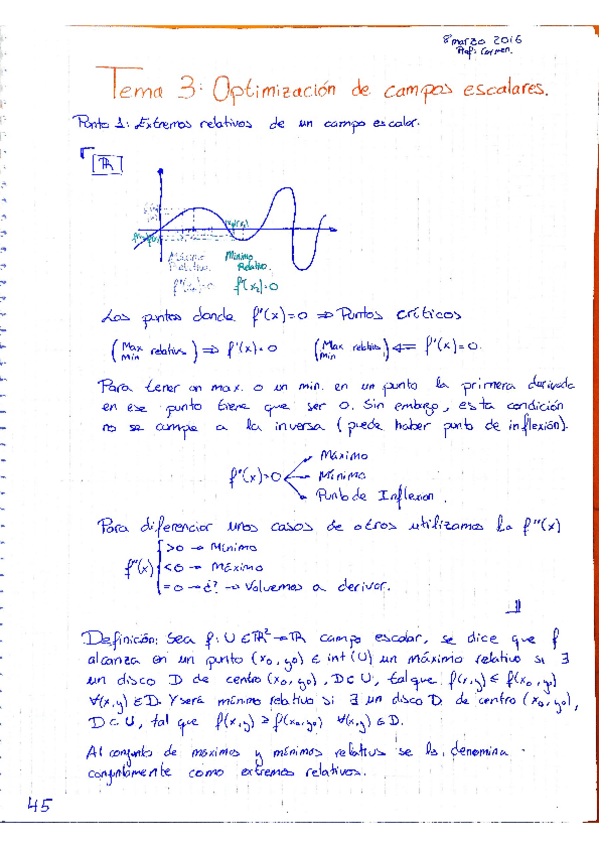 8 marzo 2016
Prof: Carmen.
Tema 3: Optimización de campos escalares.
Punto 1: Extremos relativos de un campo escalar.
ℝ
Máximo Relativo. Mínimo Relativo.
f'(x₁)=0 f'(x₂)=0
Los puntos donde f'(x)=0 ⇒ Puntos críticos
(Max Min relativos) ⇒ f'(x)=0 (Max Min relativos) ⇐ f'(x)=0.
Para tener un max. o un min. en un punto la primera derivada
en ese punto tiene que ser 0. Sin embargo, esta condición
no se cumple a la inversa (puede haber punto de inflexión).
Máximo
f'(x)=0 Mínimo
Punto de Inflexion.
Para diferenciar unos casos de otros utilizamos la f''(x)
>0 → Mínimo
f''(x) <0 → Máximo
=0 → ¿? → Volvemos a derivar.
Definición: Sea f: U ∈ ℝ² → ℝ campo escalar, se dice que f
alcanza en un punto (x₀, y₀) ∈ int (U) un máximo relativo si ∃
un disco D de centro (x₀, y₀), D⊂U, tal que f(x,y) ≤ f(x₀,y₀)
∀(x,y) ∈ D. Y será mínimo relativo si ∃ un disco D de centro (x₀, y₀),
D⊂U, tal que f(x,y) ≥ f(x₀,y₀) ∀(x,y) ∈ D.
Al conjunto de máximos y mínimos relativos se les denomina
conjuntamente como extremos relativos.
45